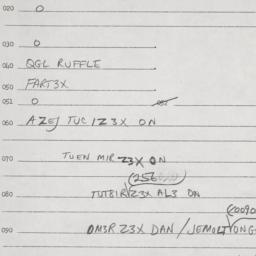 020 0
030 0
040 QGL RUFFLE
050 FART3X
051 0
060 AZEJ TUC 1Z3X ON
070 TUEN MIR Z3X ON
(256
080 TUTBIR Z3X AL3 ON
(0090
090 OM3R Z3X DAN / JEMOLT YONG